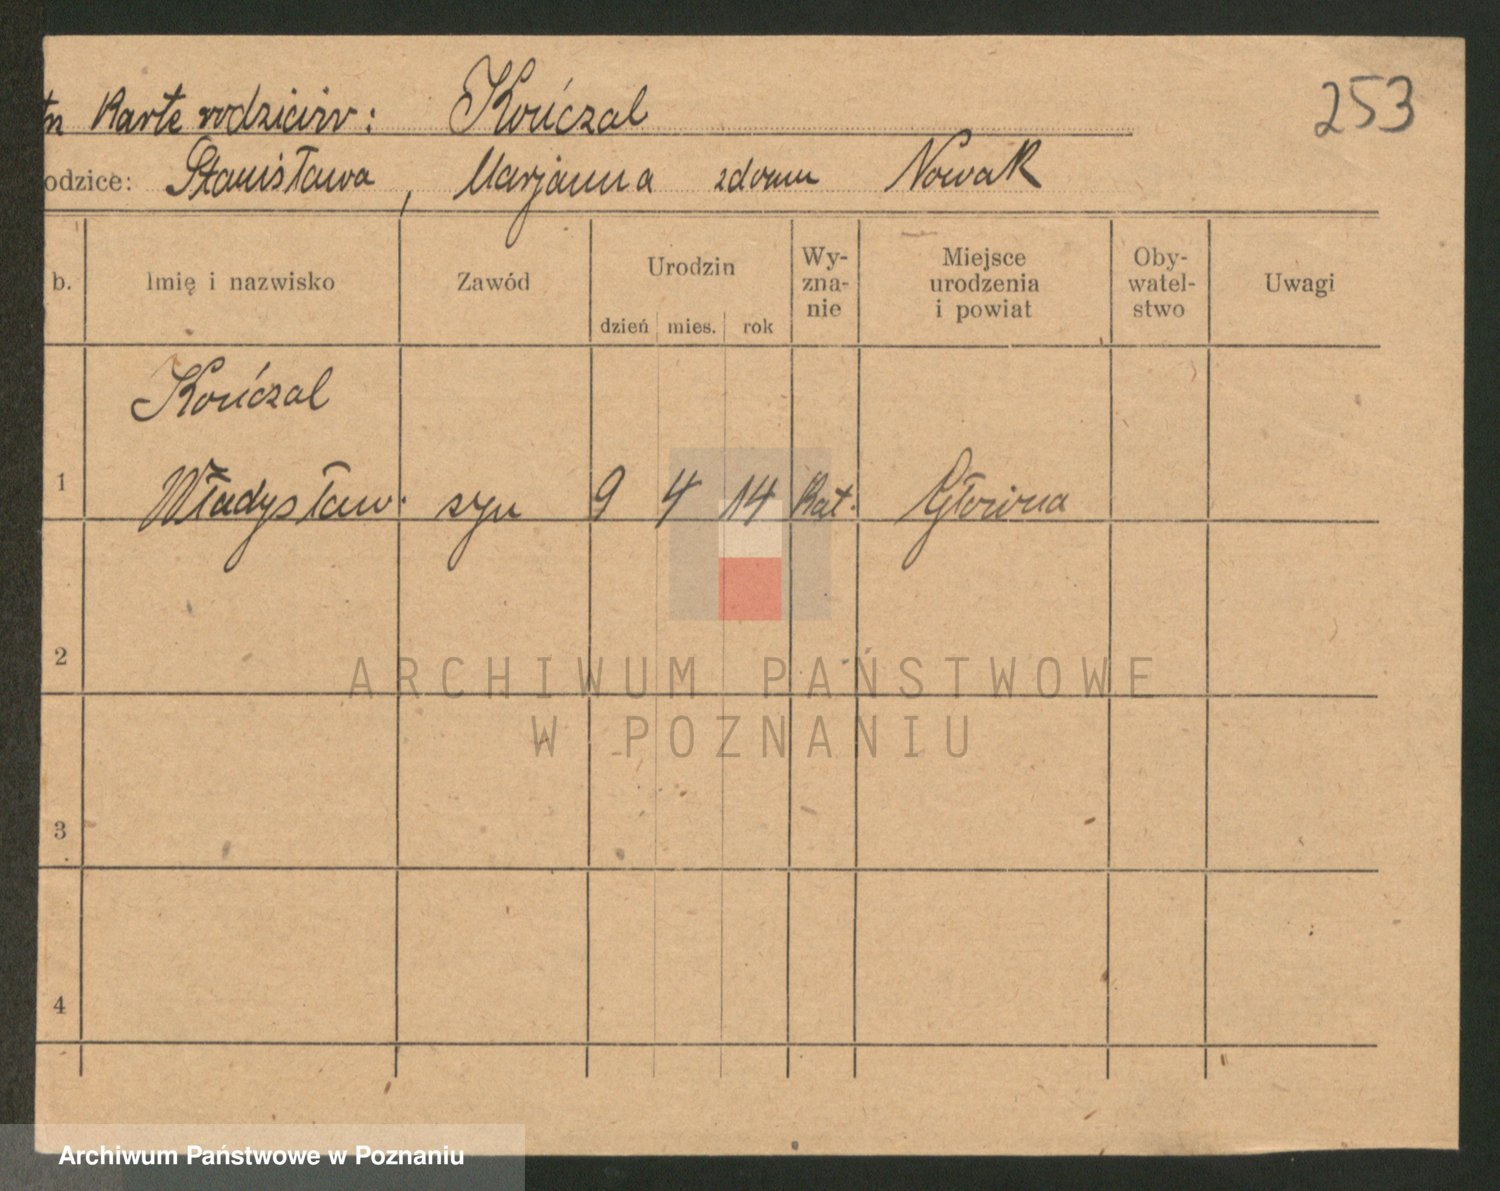 Kartę rodziców: Kończal 253
odzice: Stanisława, Marjanna z domu Nowak
b. Imię i nazwisko Zawód Urodzin dzień mies. rok Wy- zna- nie Miejsce urodzenia i powiat Oby- watel- stwo Uwagi
Kończal
1 Władysław. syn 9 4 14 kat. Główna
2
ARCHIWUM PAŃSTWOWE
W POZNANIU
3
4
Archiwum Państwowe w Poznaniu